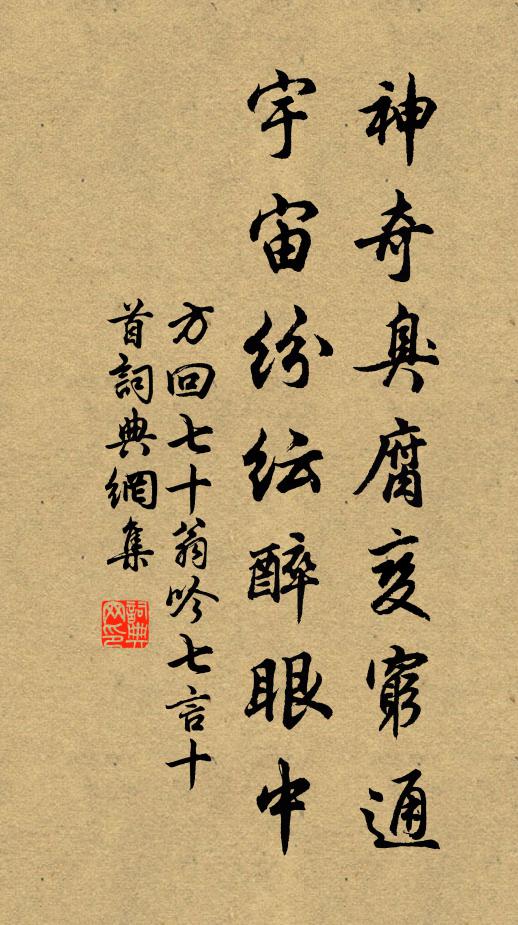 神奇臭腐变窮通
宇宙紛紜醉眼中
方回七十翁吟七言十
首詞典網集
詞典
网印